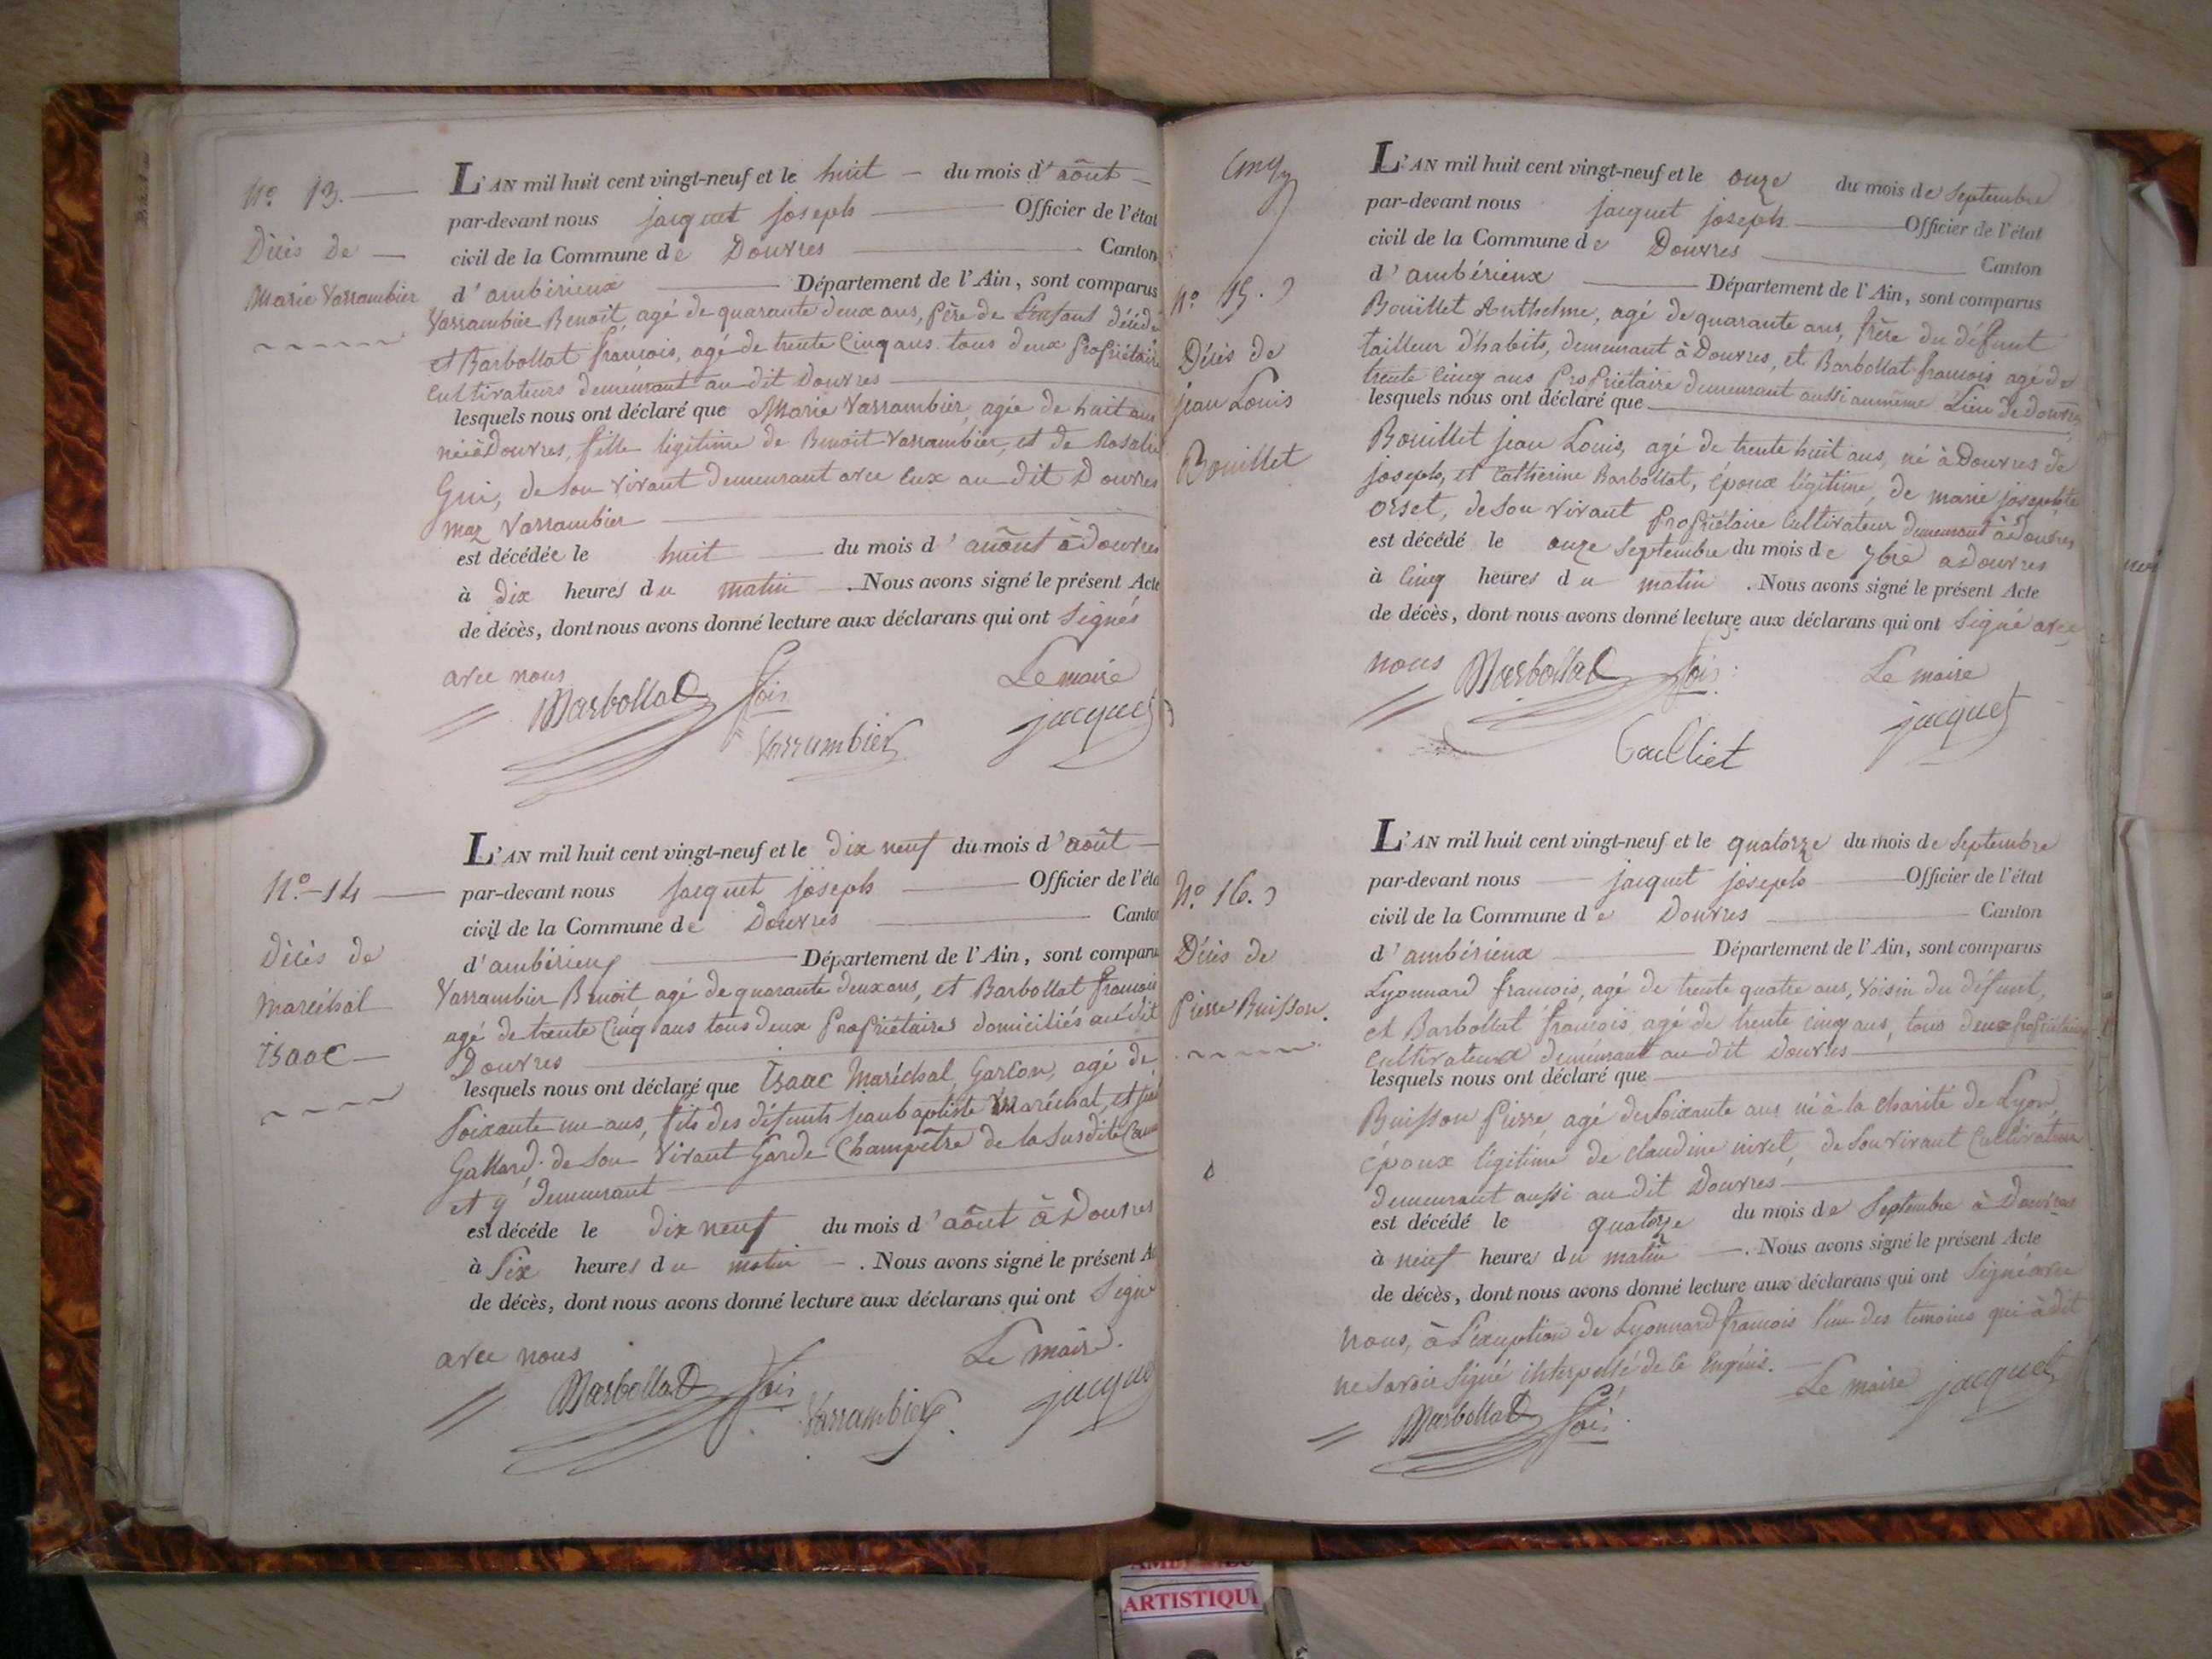 N.º 13.
Décès de
Marie Varrambier
L'AN mil huit cent vingt-neuf et le huit du mois d'aôut
par-devant nous jacquet joseph Officier de l'état
civil de la Commune de Douvres Canton
d'ambérieux Département de l'Ain, sont comparus
Varrambier Benoit, agé de quarante deux ans, père de L'enfant décédé
et Barbollat françois, agé de trente Cinq ans tous deux propriétaire
Cultivateurs demeurant au dit Douvres
lesquels nous ont déclaré que Marie Varrambier, agée de huit ans
née à Douvres, fille légitime de Benoit Varrambier, et de Rosalie
Gui, de son vivant demeurant avec eux au dit Douvres
maz Varrambier
est décédée le huit du mois d'auôut à douvres
à dix heures du matin . Nous avons signé le présent Acte
de décès, dont nous avons donné lecture aux déclarans qui ont Signés
avec nous
Le maire
Barbollat fois
jacquet
Varrambier
N.º 14
Décès de
maréchal
isaac
L'AN mil huit cent vingt-neuf et le dix neuf du mois d'août
par-devant nous jacquet joseph Officier de l'éta
civil de la Commune de Douvres Canton
d'ambérieux Département de l'Ain, sont comparu
Varrambier Benoit agé de quarante deux ans, et Barbollat françois
agé de trente Cinq ans tous deux propriétaires domiciliés au dit
Douvres
lesquels nous ont déclaré que isaac Maréchal, Garçon, agé de
Soixante un ans, fils des défunts jean baptiste Maréchal, et
Gallard. de son Vivant Garde Champêtre de la Susdite
et y demeurant
est décéde le dix neuf du mois d'aôut à Douvres
à Six heures du matin . Nous avons signé le présent Ac
de décès, dont nous avons donné lecture aux déclarans qui ont Signé
avec nous
Le maire.
Barbollat fois
Varrambier.
jacquet
Cinq
N.º 15.
Décès de
jean Louis
Bouillet
L'AN mil huit cent vingt-neuf et le onze du mois de Septembre
par-devant nous jacquet joseph Officier de l'état
civil de la Commune de Douvres Canton
d'ambérieux Département de l'Ain, sont comparus
Bouillet Anthelme, agé de quarante ans, frère du défunt
tailleur d'habits, demeurant à Douvres, et Barbollat françois agé de
trente Cinq ans propriétaire demeurant aussi au même Lieu de douvres
lesquels nous ont déclaré que
Bouillet jean Louis, agé de trente huit ans, né à Douvres de
joseph, et Catherine Barbollat, époux légitime, de marie josephte
orset, de son vivant propriétaire Cultivateur demeurant à Douvres
est décédé le onze Septembre du mois de 7bre a Douvres
à Cinq heures du matin . Nous avons signé le présent Acte
de décès, dont nous avons donné lecture aux déclarans qui ont Signé avec
nous
Barbollat fois
Le maire
jacquet
N.º 16.
Décès de
Pierre Buisson.
L'AN mil huit cent vingt-neuf et le quatorze du mois de Septembre
par-devant nous jacquet joseph Officier de l'état
civil de la Commune de Douvres Canton
d'ambérieux Département de l'Ain, sont comparus
Lyonnard françois, agé de trente quatre ans, Voisin du défunt,
et Barbollat françois, agé de trente cinq ans, tous deux propriétaires
Cultivateurs demeurant au dit Douvres
lesquels nous ont déclaré que
Buisson Pierre agé de Soixante ans né à la charité de Lyon,
époux légitime de claudine nivet, de Son vivant Cultivateur
demeurant aussi au dit Douvres
est décédé le quatorze du mois de Septembre à Douvres
à neuf heures du matin . Nous avons signé le présent Acte
de décès, dont nous avons donné lecture aux déclarans qui ont Signé avec
nous, à L'éxception de Lyonnard françois l'un des temoins qui à dit
ne Savoir Signé interpellé de le
Le maire jacquet
Barbollat fois
ARTISTIQU